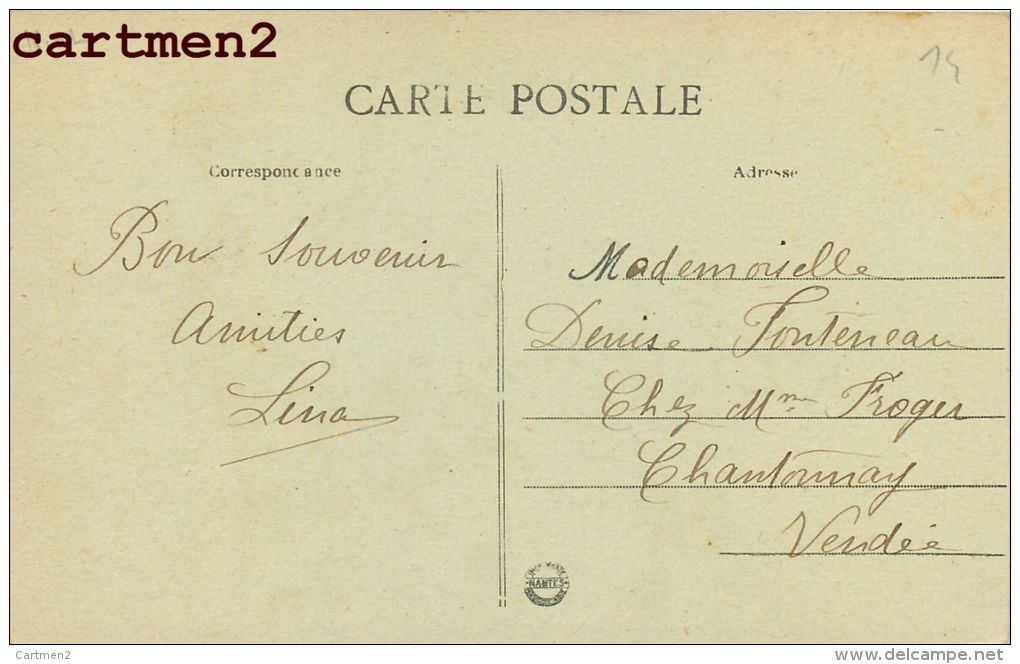 cartmen2
14
CARTE POSTALE
Correspondance
Adresse
Bon Souvenir
Amitiés
Lina
Mademoiselle
Denise Fonteneau
Chez Mme Froger
Chantonnay
Vendée
NANTES
Cartmen2
www.delcampe.net